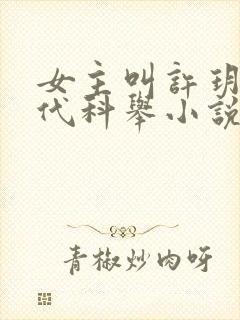 女主叫許玥
代科舉小說
青椒炒肉呀